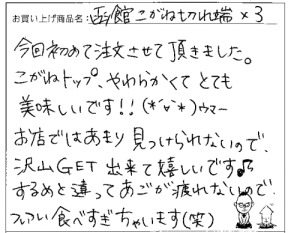 お買い上げ商品名：函館こがね切れ端×3
今回初めて注文させて頂きました。
こがねトップ、やわらかくてとても
美味しいです!!(*´∀`*)ウマー
お店ではあまり見つけられないので、
沢山GET出来て嬉しいです♫
するめと違ってあごが疲れないので
ついつい食べすぎちゃいます(笑)